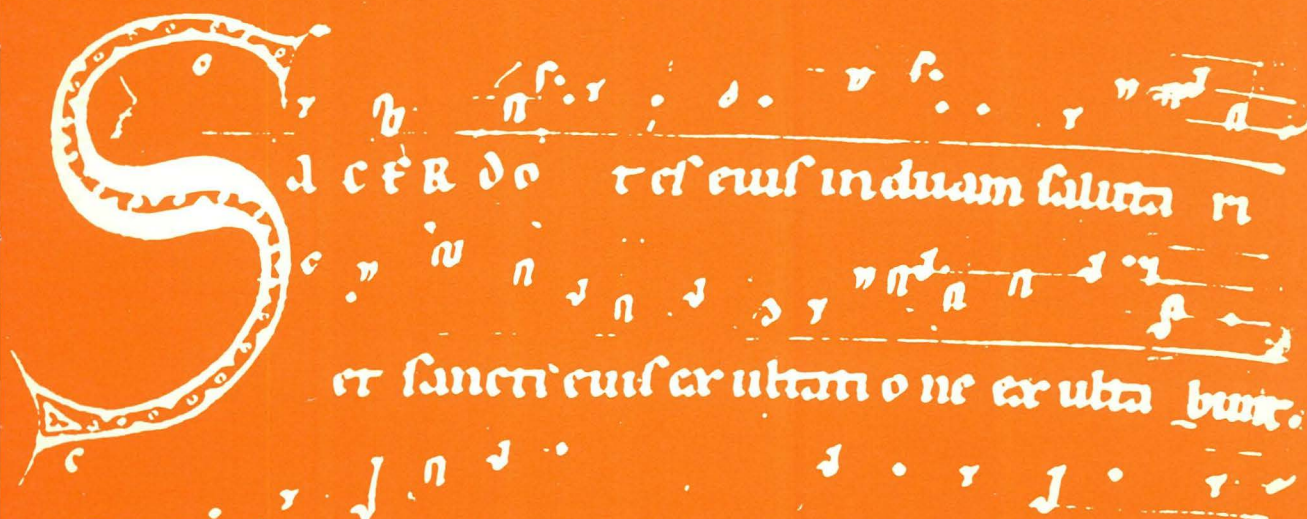 SACERDO tes eius induam saluta ri
et sancti eius ex ultati o ne ex ulta bunt.